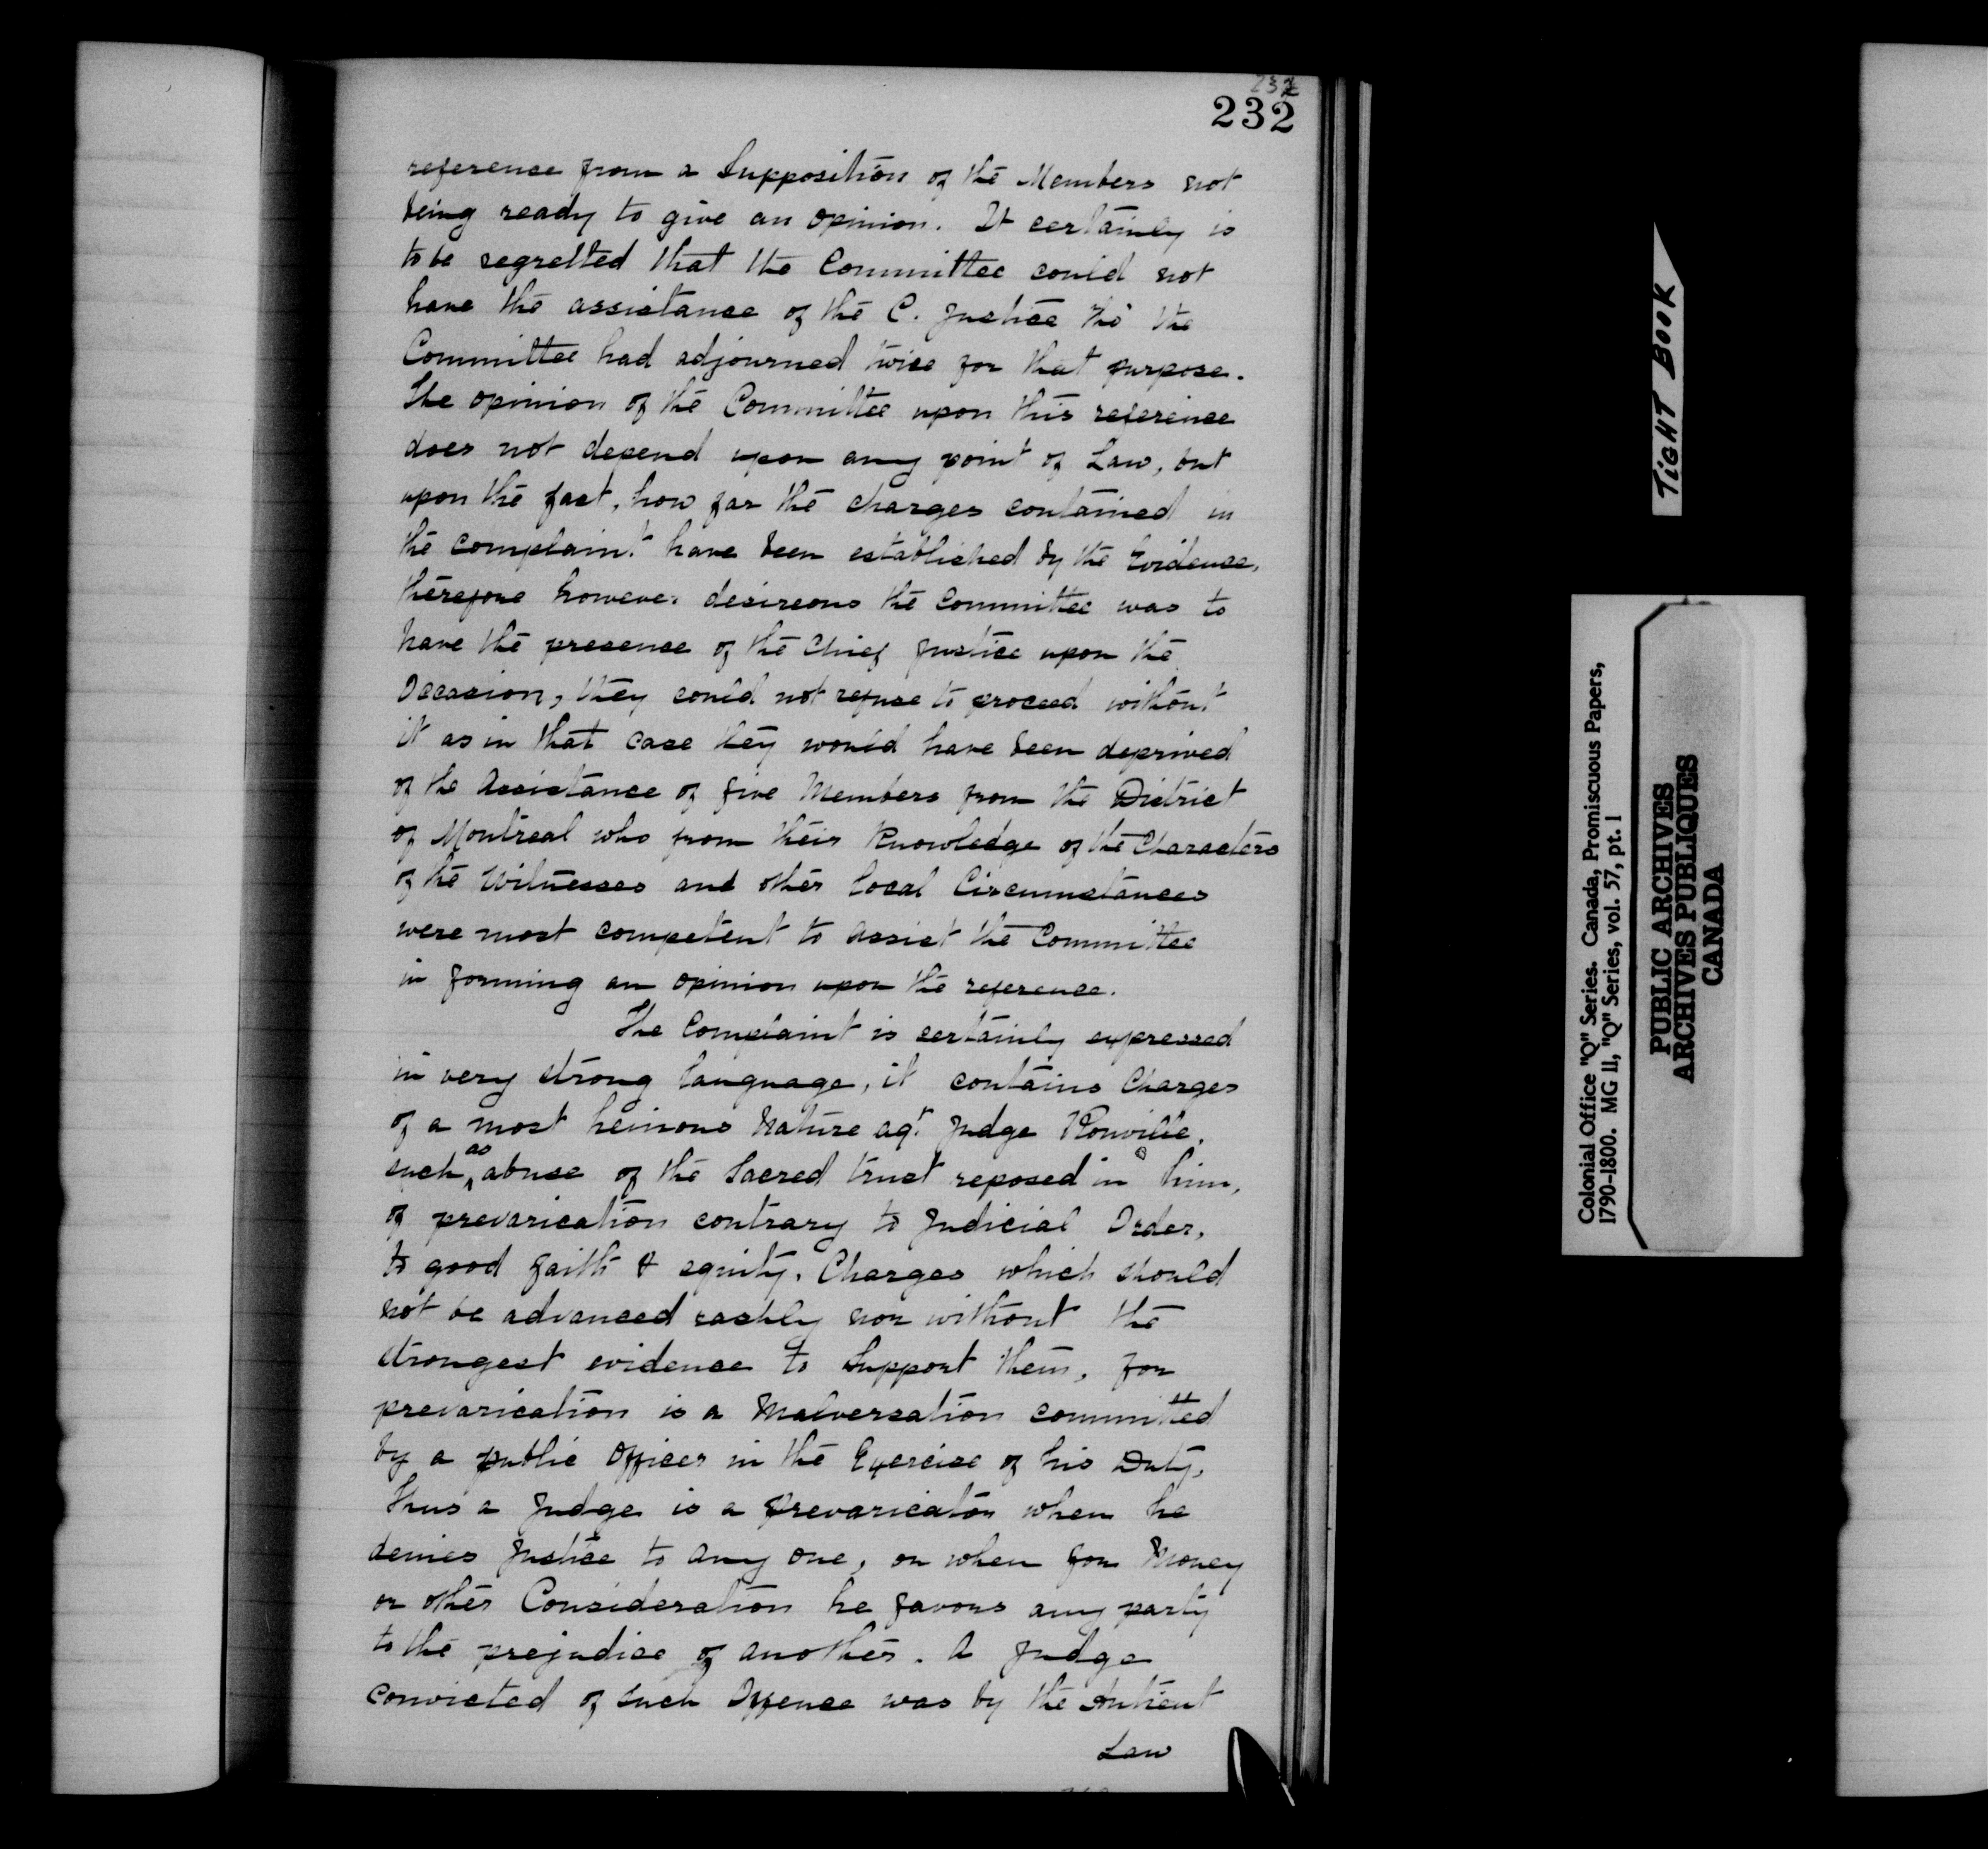 232
232
reference from a Supposition of the Members not
being ready to give an opinion. It certainly is
to be regretted that the Committee could not
have the assistance of the C. Justice tho' the
Committee had adjourned twice for that purpose.
The opinion of the Committee upon this reference
does not depend upon any point of Law, but
upon the fact, how far the charges contained in
the complaint have been established by the Evidence,
therefore however desireous the Committee was to
have the presence of the Chief Justice upon the
Occasion, they could not refuse to proceed without
it as in that case they would have been deprived
of the Assistance of five Members from the District
of Montreal who from their Knowledge of the Characters
of the Witnesses and other local Circumstances
were most competent to assist the Committee
in forming an opinion upon the reference.
The Complaint is certainly expressed
in very strong language, it contains Charges
of a most heinous Nature agt. Judge Rouville,
such as abuse of the Sacred trust reposed in him,
of prevarication contrary to Judicial Order,
to good faith & equity. Charges which should
not be advanced rashly nor without the
strongest evidence to Support them, for
prevarication is a Malversation committed
by a public Officer in the Exercise of his Duty.
Thus a Judge is a prevaricator when he
denies Justice to any one, or when for Money
or other Consideration he favors any party
to the prejudice of another. A Judge
convicted of such Offence was by the Antient
Law
TIGHT BOOK
Colonial Office "Q" Series. Canada, Promiscuous Papers,
1790-1800. MG 11, "Q" Series, vol. 57, pt. 1
PUBLIC ARCHIVES
ARCHIVES PUBLIQUES
CANADA